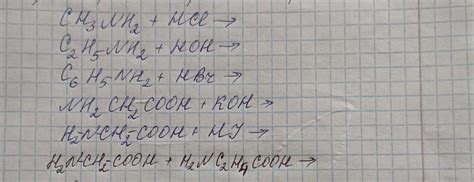 CH₃NH₂ + HCl →
C₂H₅NH₂ + HOH →
C₆H₅NH₂ + HBr →
NH₂CH₂-COOH + KOH →
H₂N-CH₂-COOH + HJ →
H₂N-CH₂-COOH + H₂NC₂H₄COOH →